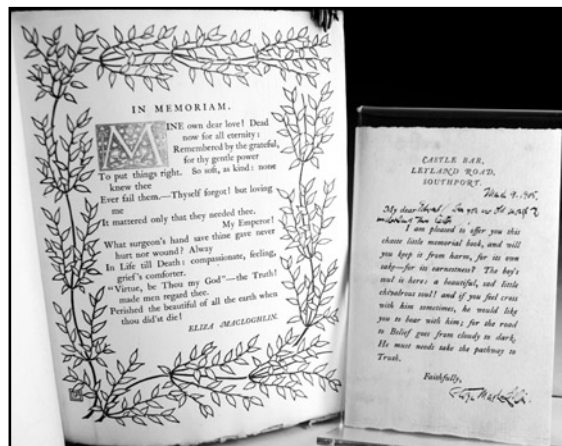 IN MEMORIAM.
MINE own dear love! Dead
now for all eternity:
Remembered by the grateful,
for thy gentle power
To put things right. So soft, as kind: none
knew thee
Ever fail them.—Thyself forgot! but loving
me
It mattered only that they needed thee.
My Emperor!
What surgeon's hand save thine gave never
hurt nor wound? Alway
In Life till Death: compassionate, feeling,
grief's comforter.
"Virtue, be Thou my God"—the Truth!
made men regard thee.
Perished the beautiful of all the earth when
thou did'st die!
ELIZA MACLOGHLIN.
CASTLE BAR,
LEYLAND ROAD,
SOUTHPORT.
My dear
I am pleased to offer you this
choete little memorial book, and will
you keep it from harm, for its own
sake—for its earnestness? The boy's
soul is here: a beautiful, sad little
chivalrous soul! and if you feel cross
with him sometimes, he would like
you to bear with him; for the road
to Belief goes from cloudy to dark.
He must needs take the pathway to
Truth.
Faithfully,